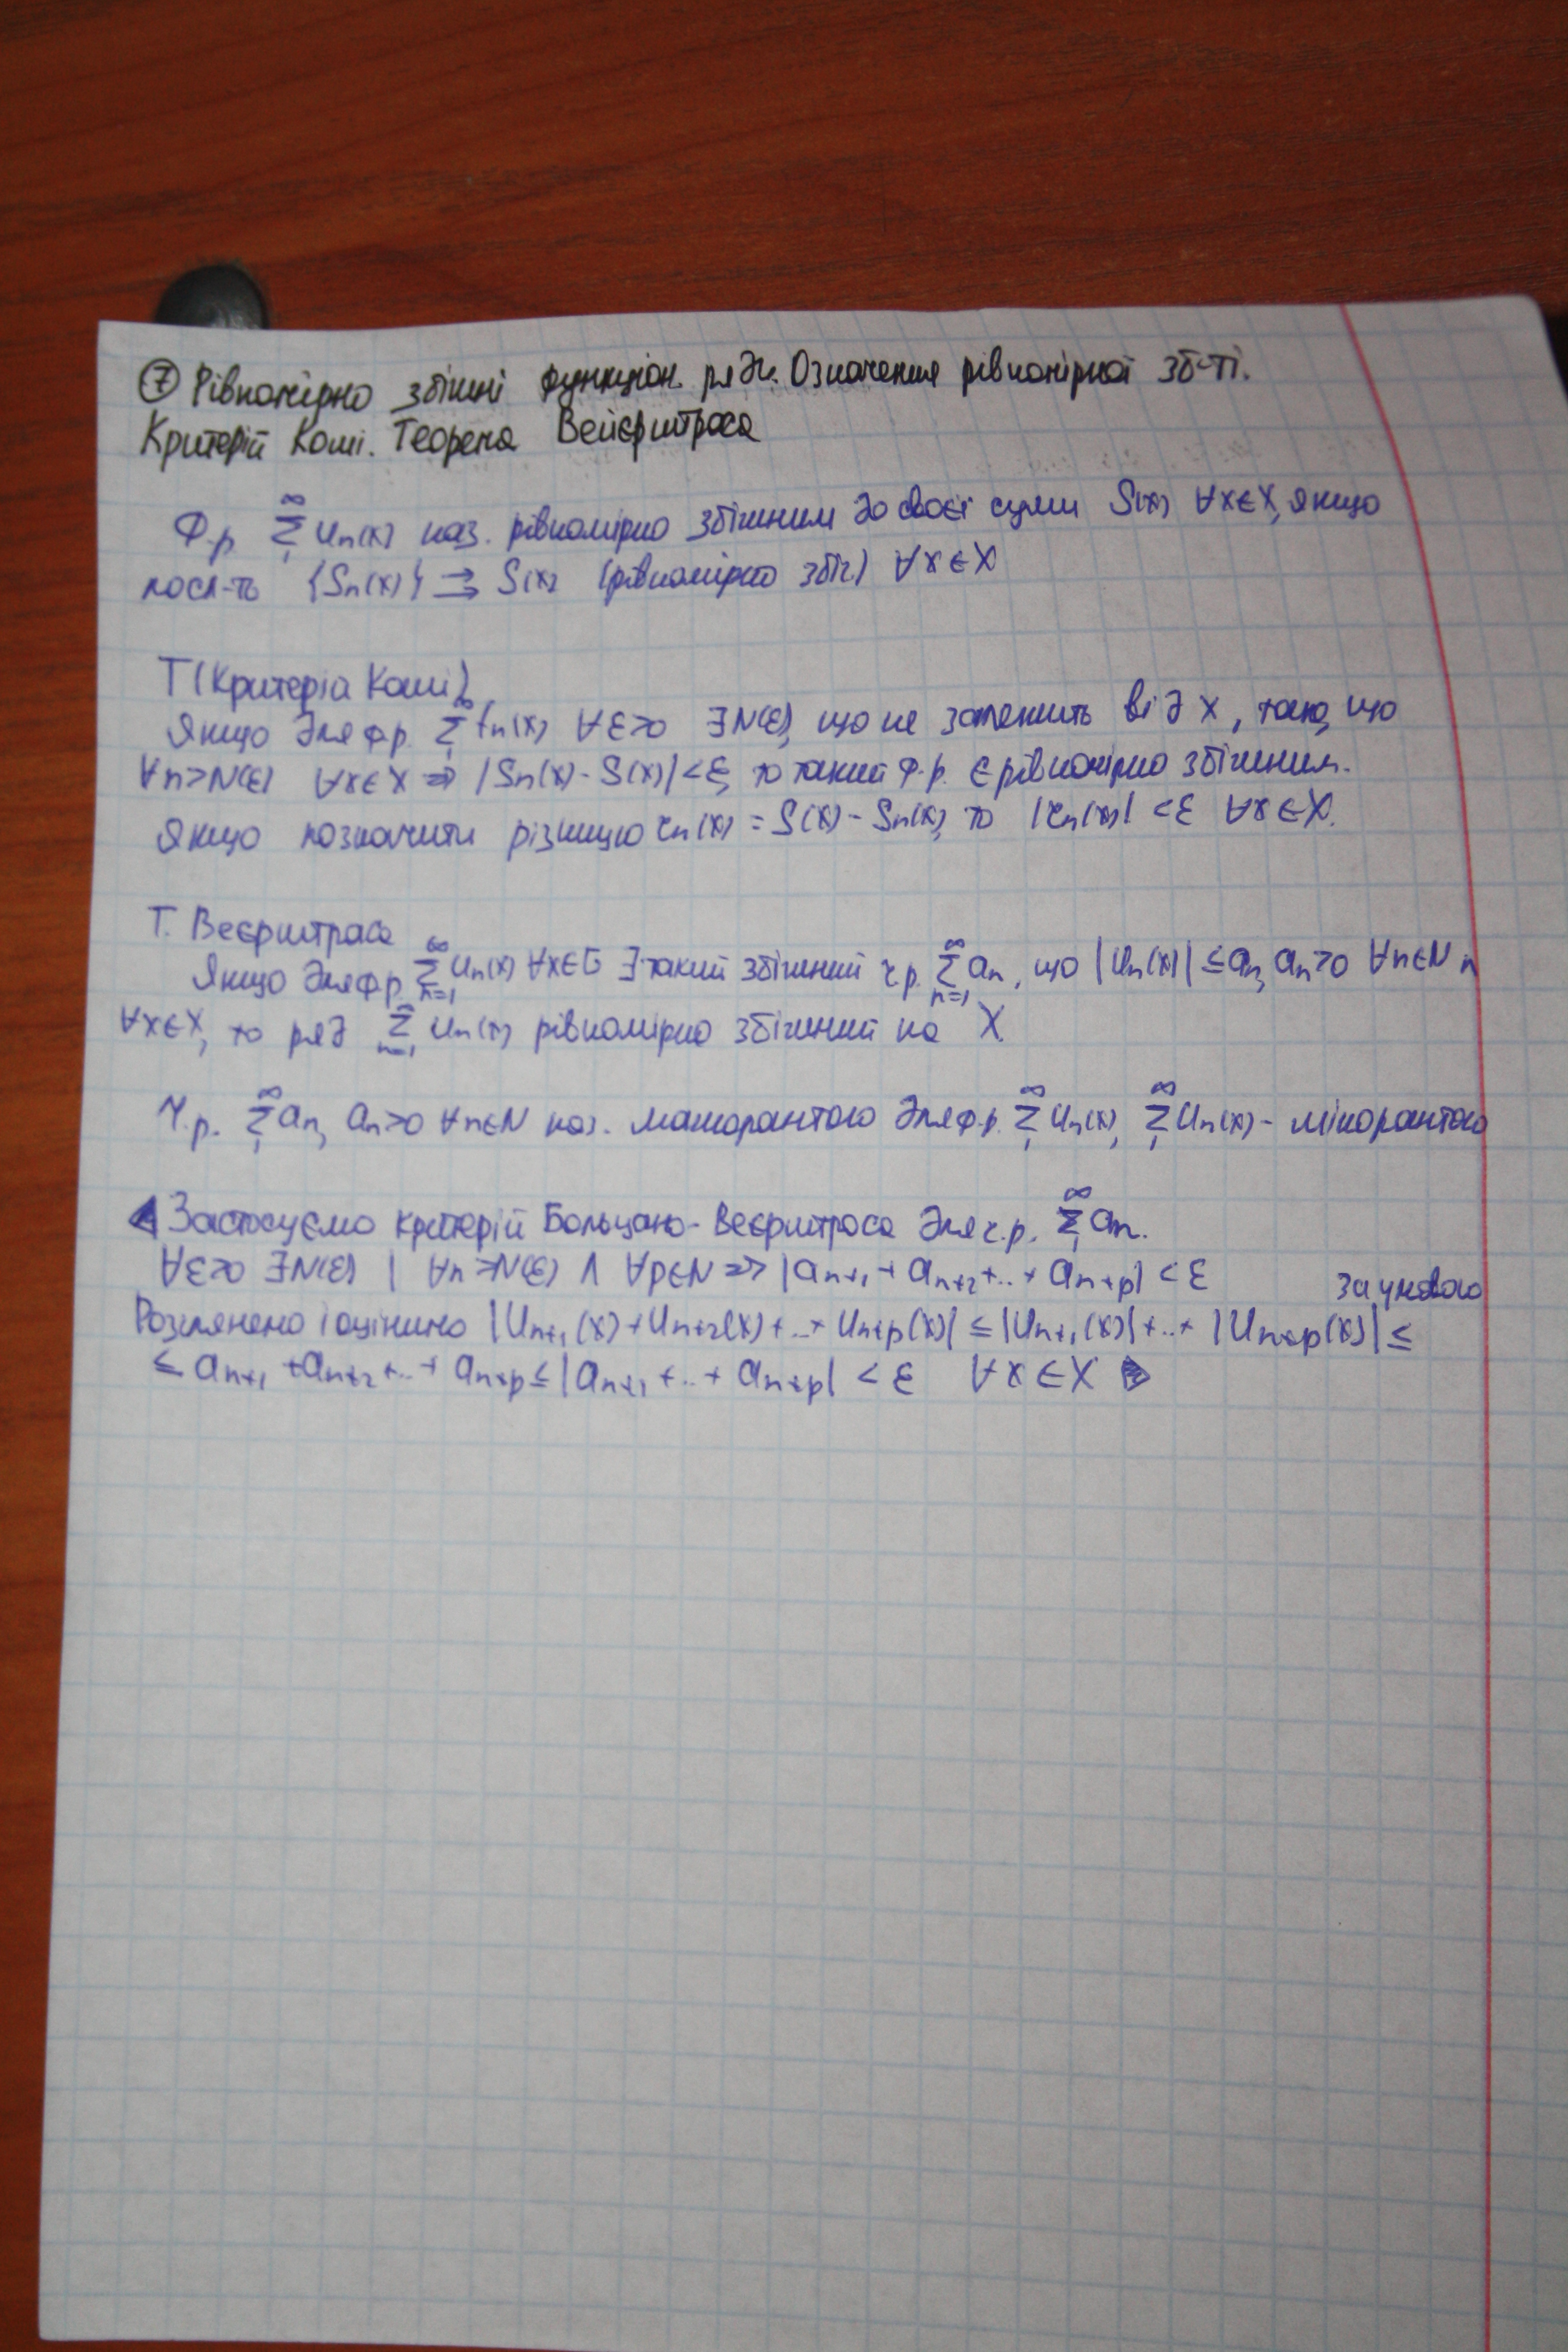 ⑦ Рівномірно збіжні функціон. ряди. Означення рівномірної зб-ті.
Критерій Коші. Теорема Вейєрштраса
Ф.р. ∞Σ1 Un(x) наз. рівномірно збіжним до своєї суми S(x) ∀x∈X, якщо
посл-ть {Sn(x)} ⇉ S(x) (рівномірно збіг.) ∀x∈X
Т (Критерія Коші)
Якщо для ф.р. ∞Σ1 fn(x) ∀ε>0 ∃N(ε), що не залежить від x, таке, що
∀n>N(ε) ∀x∈X ⇒ |Sn(x)-S(x)|<ε, то такий ф.р. є рівномірно збіжним.
Якщо позначити різницю rn(x) = S(x)-Sn(x), то |rn(x)| <ε ∀x∈X.
Т. Веєрштраса
Якщо для ф.р. ∞Σn=1 Un(x) ∀x∈E ∃ такий збіжний ч.р. ∞Σn=1 an, що |Un(x)| ≤an, an>0 ∀n∈N
∀x∈X, то ряд ∞Σn=1 Un(x) рівномірно збіжний на X
Ч.р. ∞Σ1 an, an>0 ∀n∈N наз. мажорантою для ф.р. ∞Σ1 Un(x), ∞Σ1 Un(x) - мінорантою
◀ Застосуємо критерій Больцано-Веєрштраса для ч.р. ∞Σ1 an.
∀ε>0 ∃N(ε) | ∀n>N(ε) ∧ ∀p∈N => |an+1 + an+2 +..+ an+p| < ε
за умовою
Розглянемо і оцінимо |Un+1(x)+Un+2(x)+..+ Un+p(x)| ≤ |Un+1(x)|+..+ |Un+p(x)| ≤
≤ an+1 +an+2 +..+ an+p ≤ |an+1 +..+ an+p| < ε ∀x∈X ▶